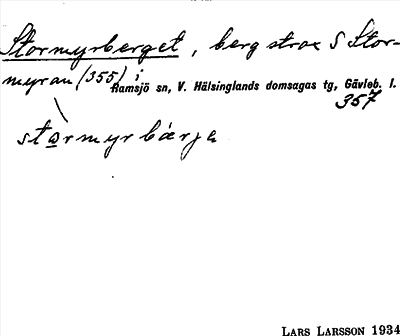 Stormyrberget, berg strax S Stor-
myran (355) i
Ramsjö sn, V. Hälsinglands domsagas tg, Gävleb. l.
357
stormyrbärja
LARS LARSSON 1934